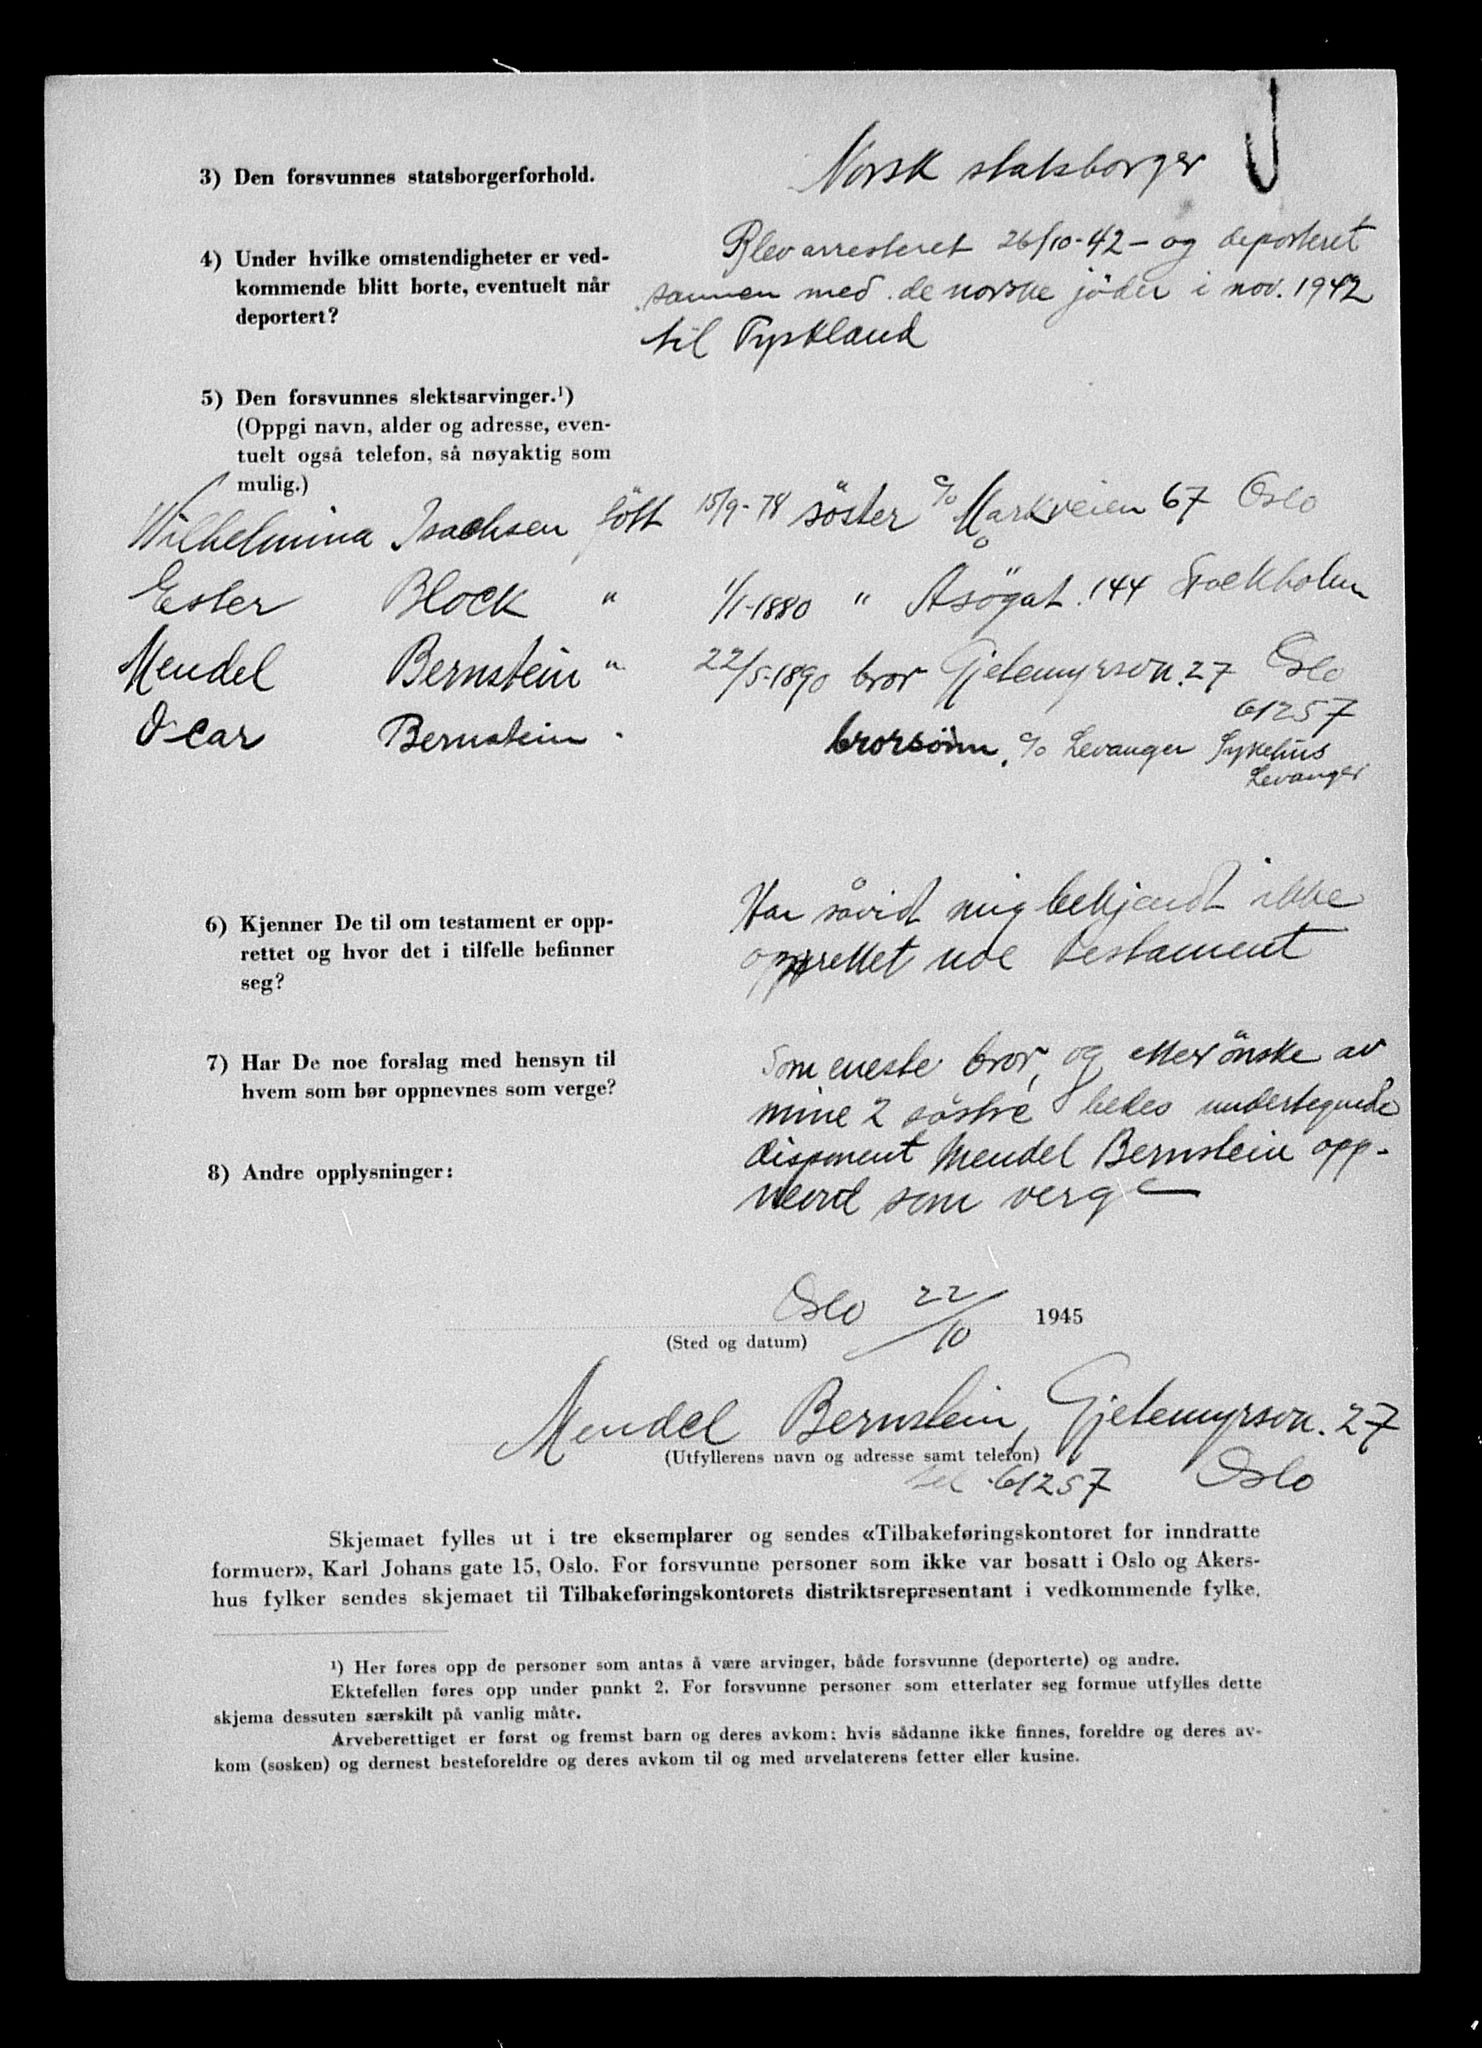 3) Den forsvunnes statsborgerforhold.
Norsk statsborger
4) Under hvilke omstendigheter er ved-
kommende blitt borte, eventuelt når
deportert?
Blev arresteret 26/10-42 - og deporteret
sammen med de norske jöder i nov. 1942
til Tyskland
5) Den forsvunnes slektsarvinger.¹)
(Oppgi navn, alder og adresse, even-
tuelt også telefon, så nøyaktig som
mulig.)
Wilhelmina Isachsen född 15/9-78 söster c/o Markveien 67 Oslo
Ester Block " 1/1-1880 " Åsögat. 144 Stockholm
Mendel Bernstein " 22/5-1890 bror Gjetemyrsvn. 27 Oslo
61257
Oscar Bernstein . brorsönn. c/o Levanger Sykehus
Levanger
6) Kjenner De til om testament er opp-
rettet og hvor det i tilfelle befinner
seg?
Har såvidt mig bekjendt ikke
opprettet noe testament
7) Har De noe forslag med hensyn til
hvem som bør oppnevnes som verge?
Som eneste bror, og etter önske av
mine 2 söstre bedes undertegnede
disponent Mendel Bernstein opp-
nevnt som verge
8) Andre opplysninger:
Oslo 22/10 1945
(Sted og datum)
Mendel Bernstein, Gjetemyrsvn. 27
(Utfyllerens navn og adresse samt telefon)
tel. 61257 Oslo
Skjemaet fylles ut i tre eksemplarer og sendes «Tilbakeføringskontoret for inndratte
formuer», Karl Johans gate 15, Oslo. For forsvunne personer som ikke var bosatt i Oslo og Akers-
hus fylker sendes skjemaet til Tilbakeføringskontorets distriktsrepresentant i vedkommende fylke.
¹) Her føres opp de personer som antas å være arvinger, både forsvunne (deporterte) og andre.
Ektefellen føres opp under punkt 2. For forsvunne personer som etterlater seg formue utfylles dette
skjema dessuten særskilt på vanlig måte.
Arveberettiget er først og fremst barn og deres avkom; hvis sådanne ikke finnes, foreldre og deres av-
kom (søsken) og dernest besteforeldre og deres avkom til og med arvelaterens fetter eller kusine.